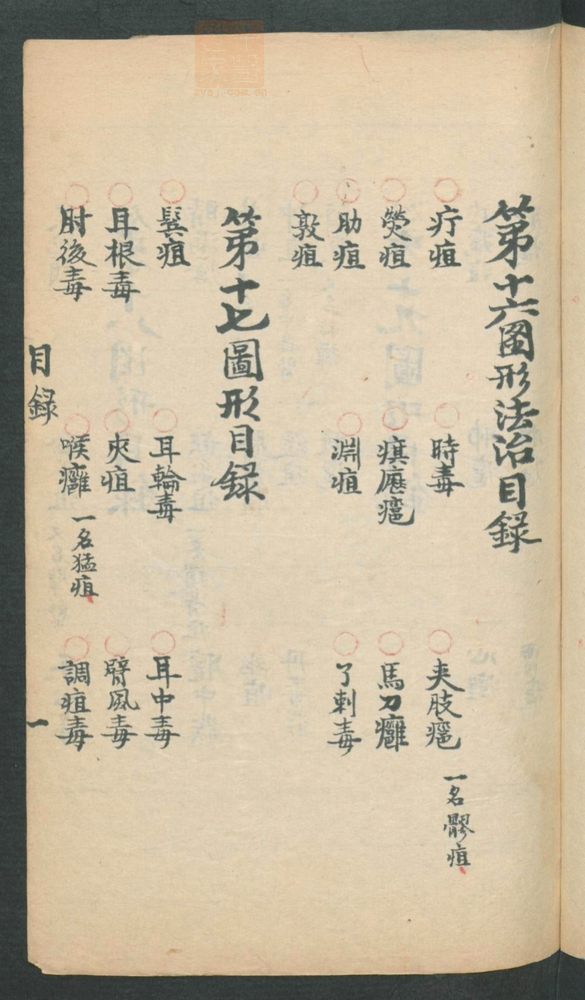 第十六圖形法治目録
疔疽 時毒 夾肢癰 一名髎疽
熒疽 馬刀癰
肋疽 淵疽 了刺毒
敦疽
第十七圖形目録
鬓疽 耳輪毒 耳中毒
耳根毒 夾疽 臂風毒
肘後毒 喉癰 一名猛疽 調疽毒
目録 一